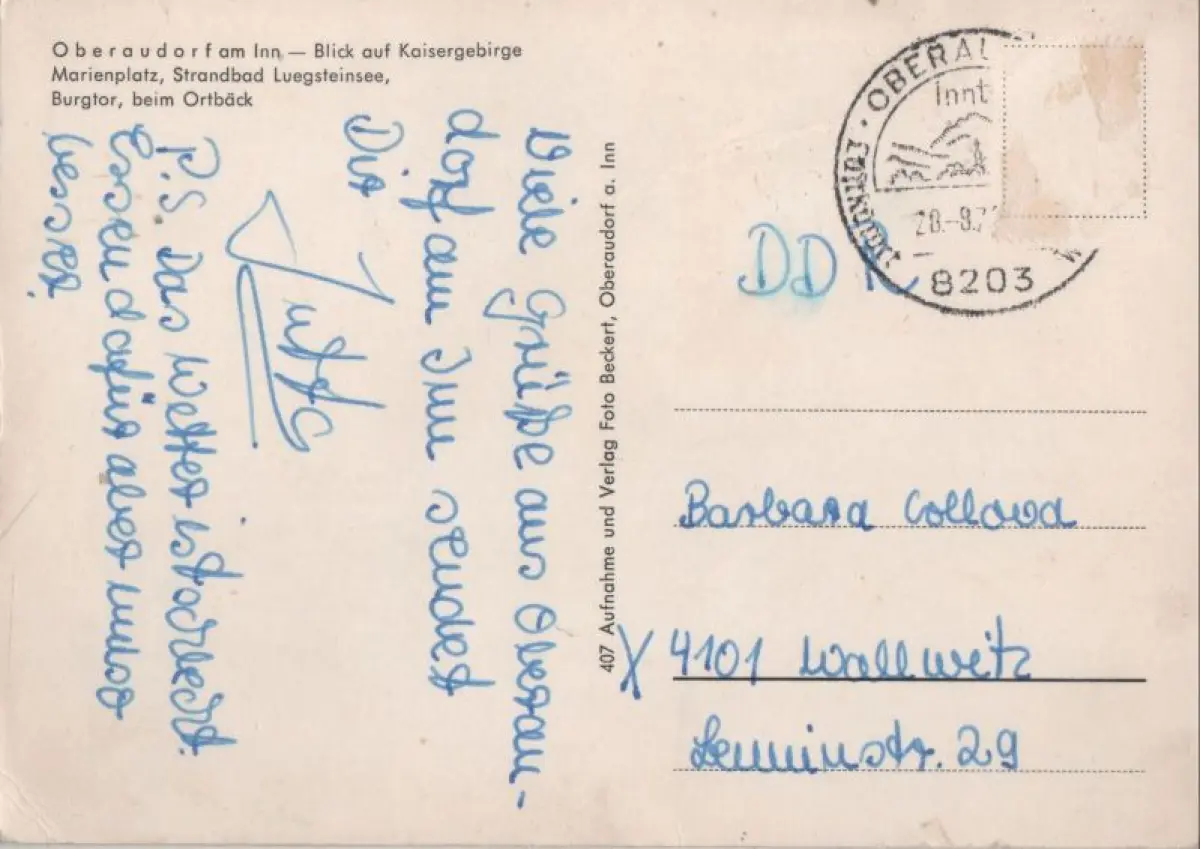 Oberaudorf am Inn — Blick auf Kaisergebirge
Marienplatz, Strandbad Luegsteinsee,
Burgtor, beim Ortbäck
Viele Grüße aus Oberau-
dorf am Inn sendet
Dir
Jutta
P.S. Das Wetter ist schlecht.
Essen dafür aber umso
besser.
407 Aufnahme und Verlag Foto Beckert, Oberaudorf a. Inn
OBERAU
Innt
28.-8.7
8203
DDR
Barbara Collova
X 4101 Wallwitz
Leninstr. 29